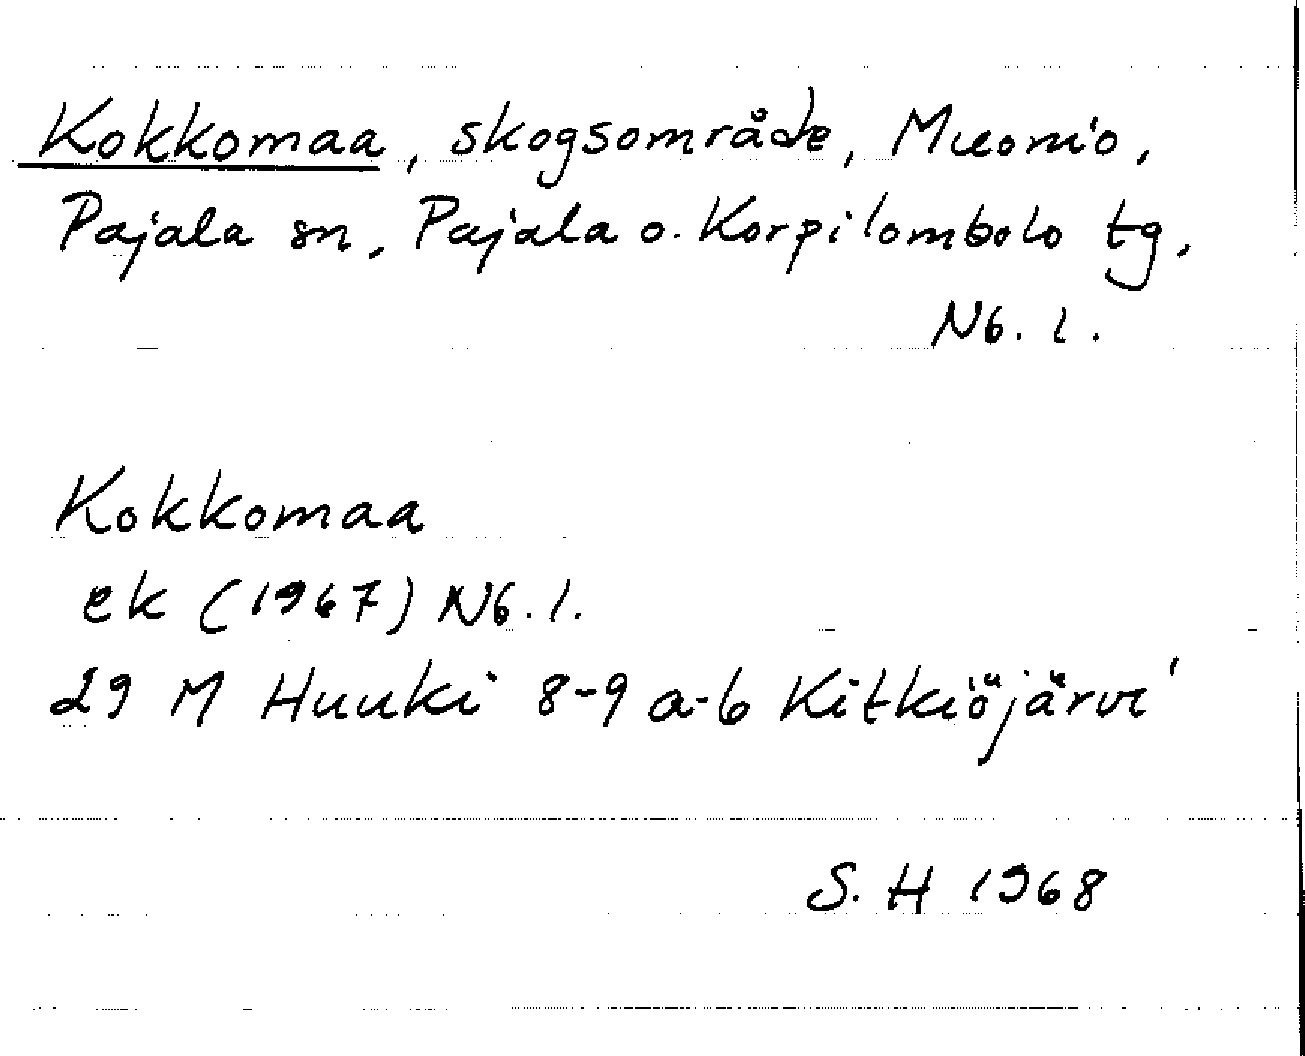 Kokkomaa, skogsområde, Muonio,
Pajala sn, Pajala o. Korpilombolo tg,
Nb. l.
Kokkomaa
ek (1967) Nb. l.
29 M Huuki 8-9 a-b Kitkiöjärvi
S. H 1968